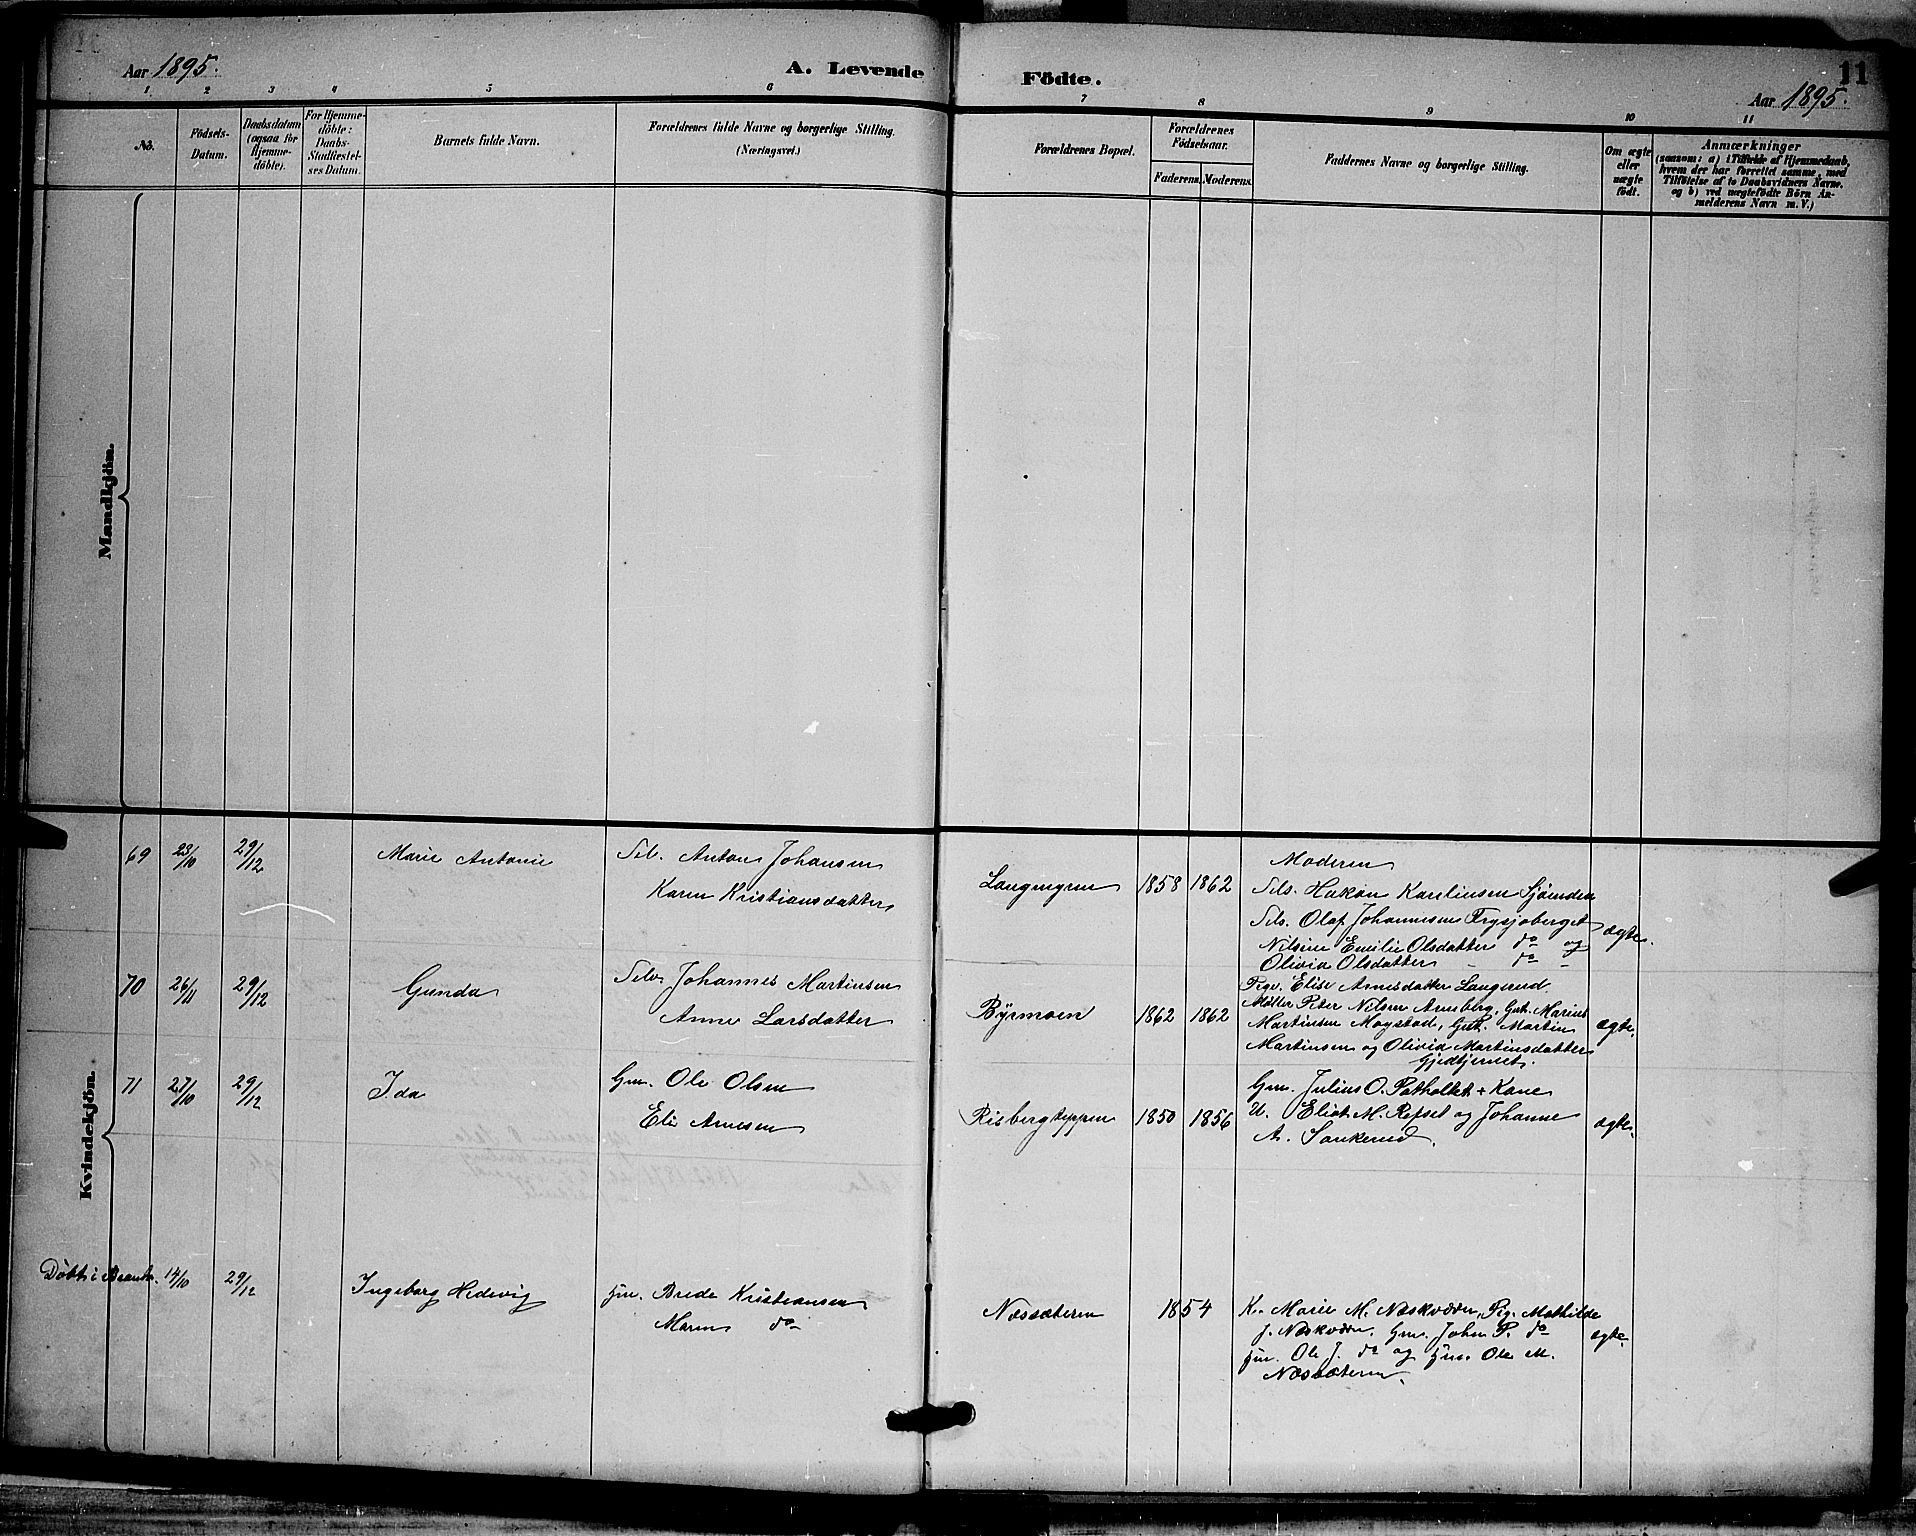 Aar 1895.
A. Levende Födte.
11
Aar 1895.
1 2 3 4 5 6 7 8 9 10 11
No.
Födsels-Datum.
Daabsdatum (ogsaa for Hjemme-döbte).
For Hjemme-döbte: Daabs-Stadfæstel-ses Datum.
Barnets fulde Navn.
Forældrenes fulde Navne og borgerlige Stilling. (Næringsvei.)
Forældrenes Bopæl.
Forældrenes Födselsaar.
Faderens. Moderens.
Faddernes Navne og borgerlige Stilling.
Om ægte eller uægte födt.
Anmærkninger
(saasom: a) i Tilfælde af Hjemmedaab, hvem der har forrettet samme, med Tilföielse af to Daabsvidners Navne. og b) ved uægtefödte Börn Anmelderens Navn m. V.)
Mandkjön.
Kvindekjön.
69 23/10 29/12 Marie Antonie
Selv. Anton Johansen
Karen Kristiansdatter
Langmyren 1858 1862
Moderen
Selv. Hakon Karelinsen Sjömden
Selv. Olaf Johannesen Frysjoberget
Nilsine Emilie Olsdatter do og
Olivia Olsdatter - do -
ægte.
70 26/11 29/12 Gunda
Selv. Johannes Martinsen
Anne Larsdatter
Byrmoen 1862 1862
Pige. Elise Arnesdatter Langerud.
Møller Peter Nilsen Arneberg, Gut. Marius
Martinsen Mogstad, Gut. Martin
Martinsen og Olivia Martinsdatter
Gjedtjernet.
ægte.
71 27/10 29/12 Ida
Gm. Ole Olsen
Eli Arnesen
Risbergkoppen 1850 1856
Gm. Julius O. + Kone
U. M. Refset og Johanne
A. Sankerud.
ægte.
Döbt i 14/10 29/12 Ingeborg Hedevig
Hm. Brede Kristiansen
Maren do
Næssæteren 1854
K. Marie M. Næskværn, Pig. Mathilde
J. Næskværn, Gm. John P. do
Hm. Ole J. do og Hm. Ole M.
Næssæteren.
ægte.